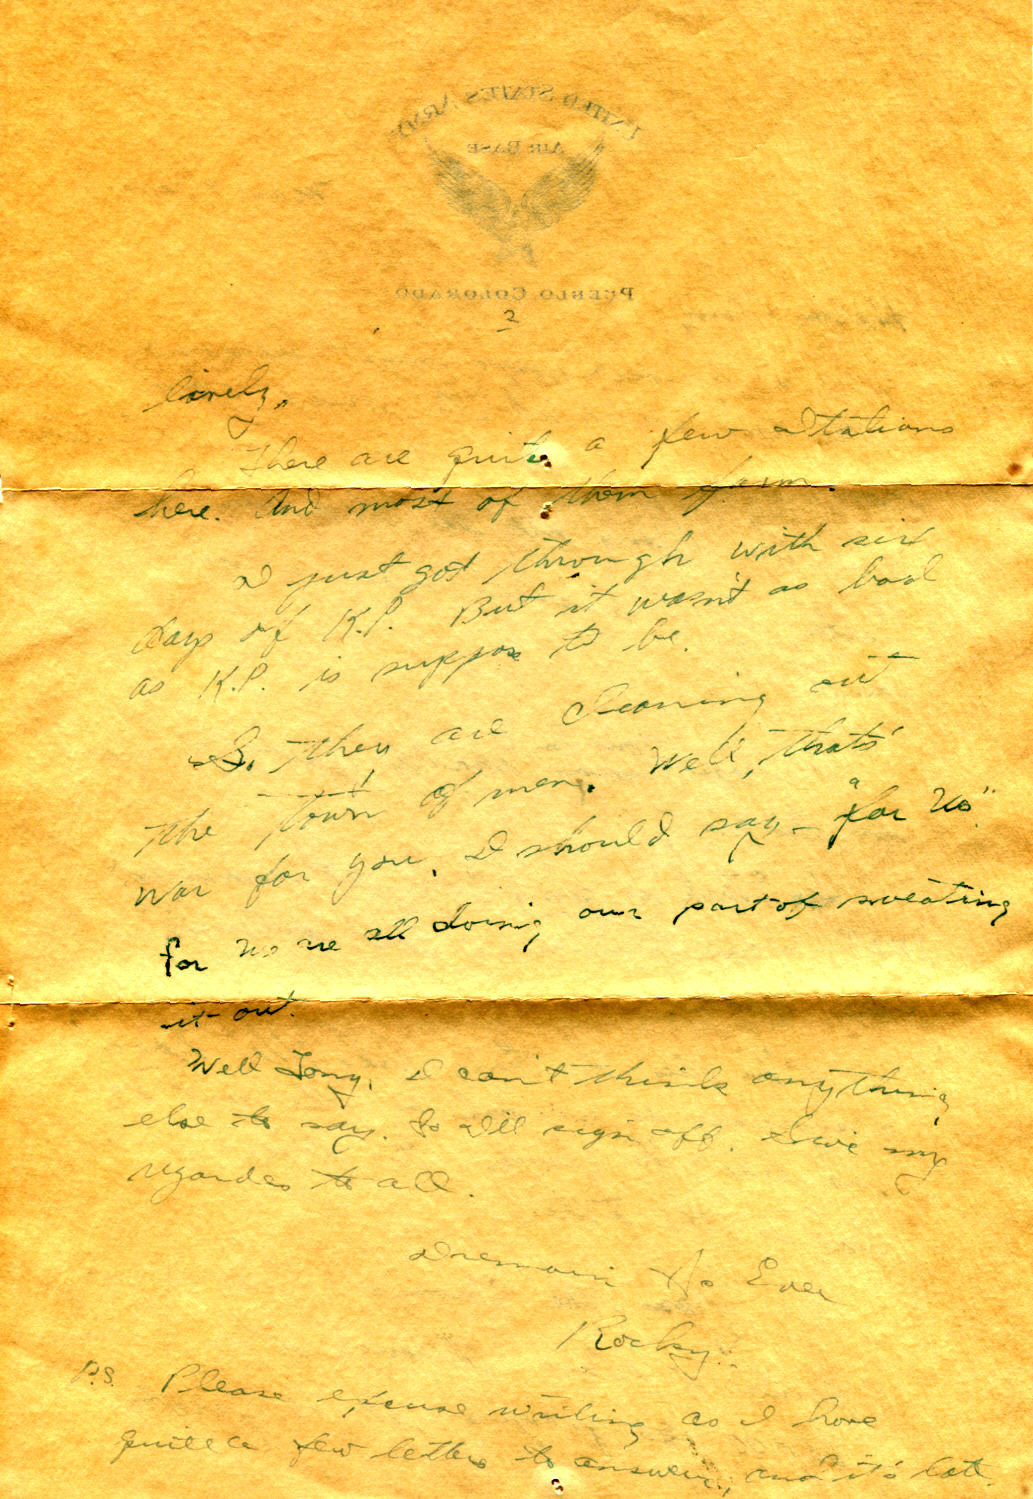 UNITED STATES ARMY
AIR BASE
PUEBLO COLORADO
2
lively.
There are quite a few Italians
here. And most of them farm.
I just got through with six
days of K.P. But it wasn't as bad
as K.P. is suppose to be.
So, they are cleaning out
the town of men. Well, that's
war for you. I should say - "for us".
for us are all doing our part of sweating
it out.
Well Tony, I can't think anything
else to say. So I'll sign off. Give my
regardes to all.
I remain As Ever
Rocky.
P.S. Please excuse writing as I have
quite a few letters to answer, and it's late.